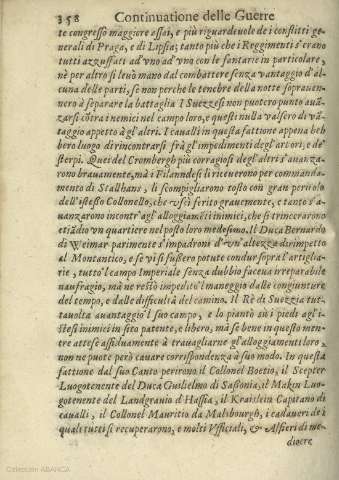 358 Continuatione delle Guerre
te congresso maggiore assai, e più riguardeuole de i conflitti ge-
nerali di Praga, e di Lipsia; tanto più che i Reggimẽti s'erano
tutti azzuffati ad vno ad vno con le fantarie in particolare,
nè per altro si leuò mano dal combattere senza vantaggio d'al-
cuna delle parti, se non perche le tenebre della notte soprauen-
nero à separare la battaglia I Suezzesi non puotero punto auã-
zarsi cõtra i nemici nel campo loro, e questi nulla valsero di vã-
taggio appetto à gl'altri. I caualli in questa fattione appena heb
bero luogo di rincontrarsi frà gl'impedimenti degl'arbori, e de'
sterpi. Quei del Crombergh più corragiosi degl'altri s'auanza-
rono brauamente, mà i Filandesi li riceuerono per commanda-
mento di Stalhans, li scompigliarono tosto con gran pericolo
dell'istesso Collonello, che vscì ferito grauemente, e tanto s'a-
uanzarono incontr'agl'alloggiamẽti inimici, che si trincerarono
etiãdio vn quartiere nel posto loro medesimo. Il Duca Bernardo
di Weimar parimente s'impadronì d'vn'altezza dirimpetto
al Montantico, e se vi si fussero potute condur sopra l'artiglia-
rie, tutto'l campo Imperiale senza dubbio faceua irreparabile
naufragio, mà ne restò impedito'l maneggio dalle congiunture
del tempo, e dalle difficoltà del camino. Il Rè di Suezzia tut-
tauolta auantaggiò'l suo campo, e lo piantò sù i piedi agl'i-
stessi inimici in sito patente, e libero, mà se bene in questo men-
tre attese assiduamente à trauagliarne gl'alloggiamenti loro,
non ne puote però cauare correspondenza à suo modo. In questa
fattione dal suo Canto perirono il Collonel Boetio, il Scepter
Luogotenente del Duca Guilielmo di Sassonia, il Makin Luo-
gotenente del Landgrauio d'Hassia, il Kraislein Capitano di
caualli, il Collonel Mauritio da Malsbourgh, i cadaueri de i
quali tutti si recuperarono, e molti Vfficiali, & Alfieri di me-
diocre
Colección ABANCA